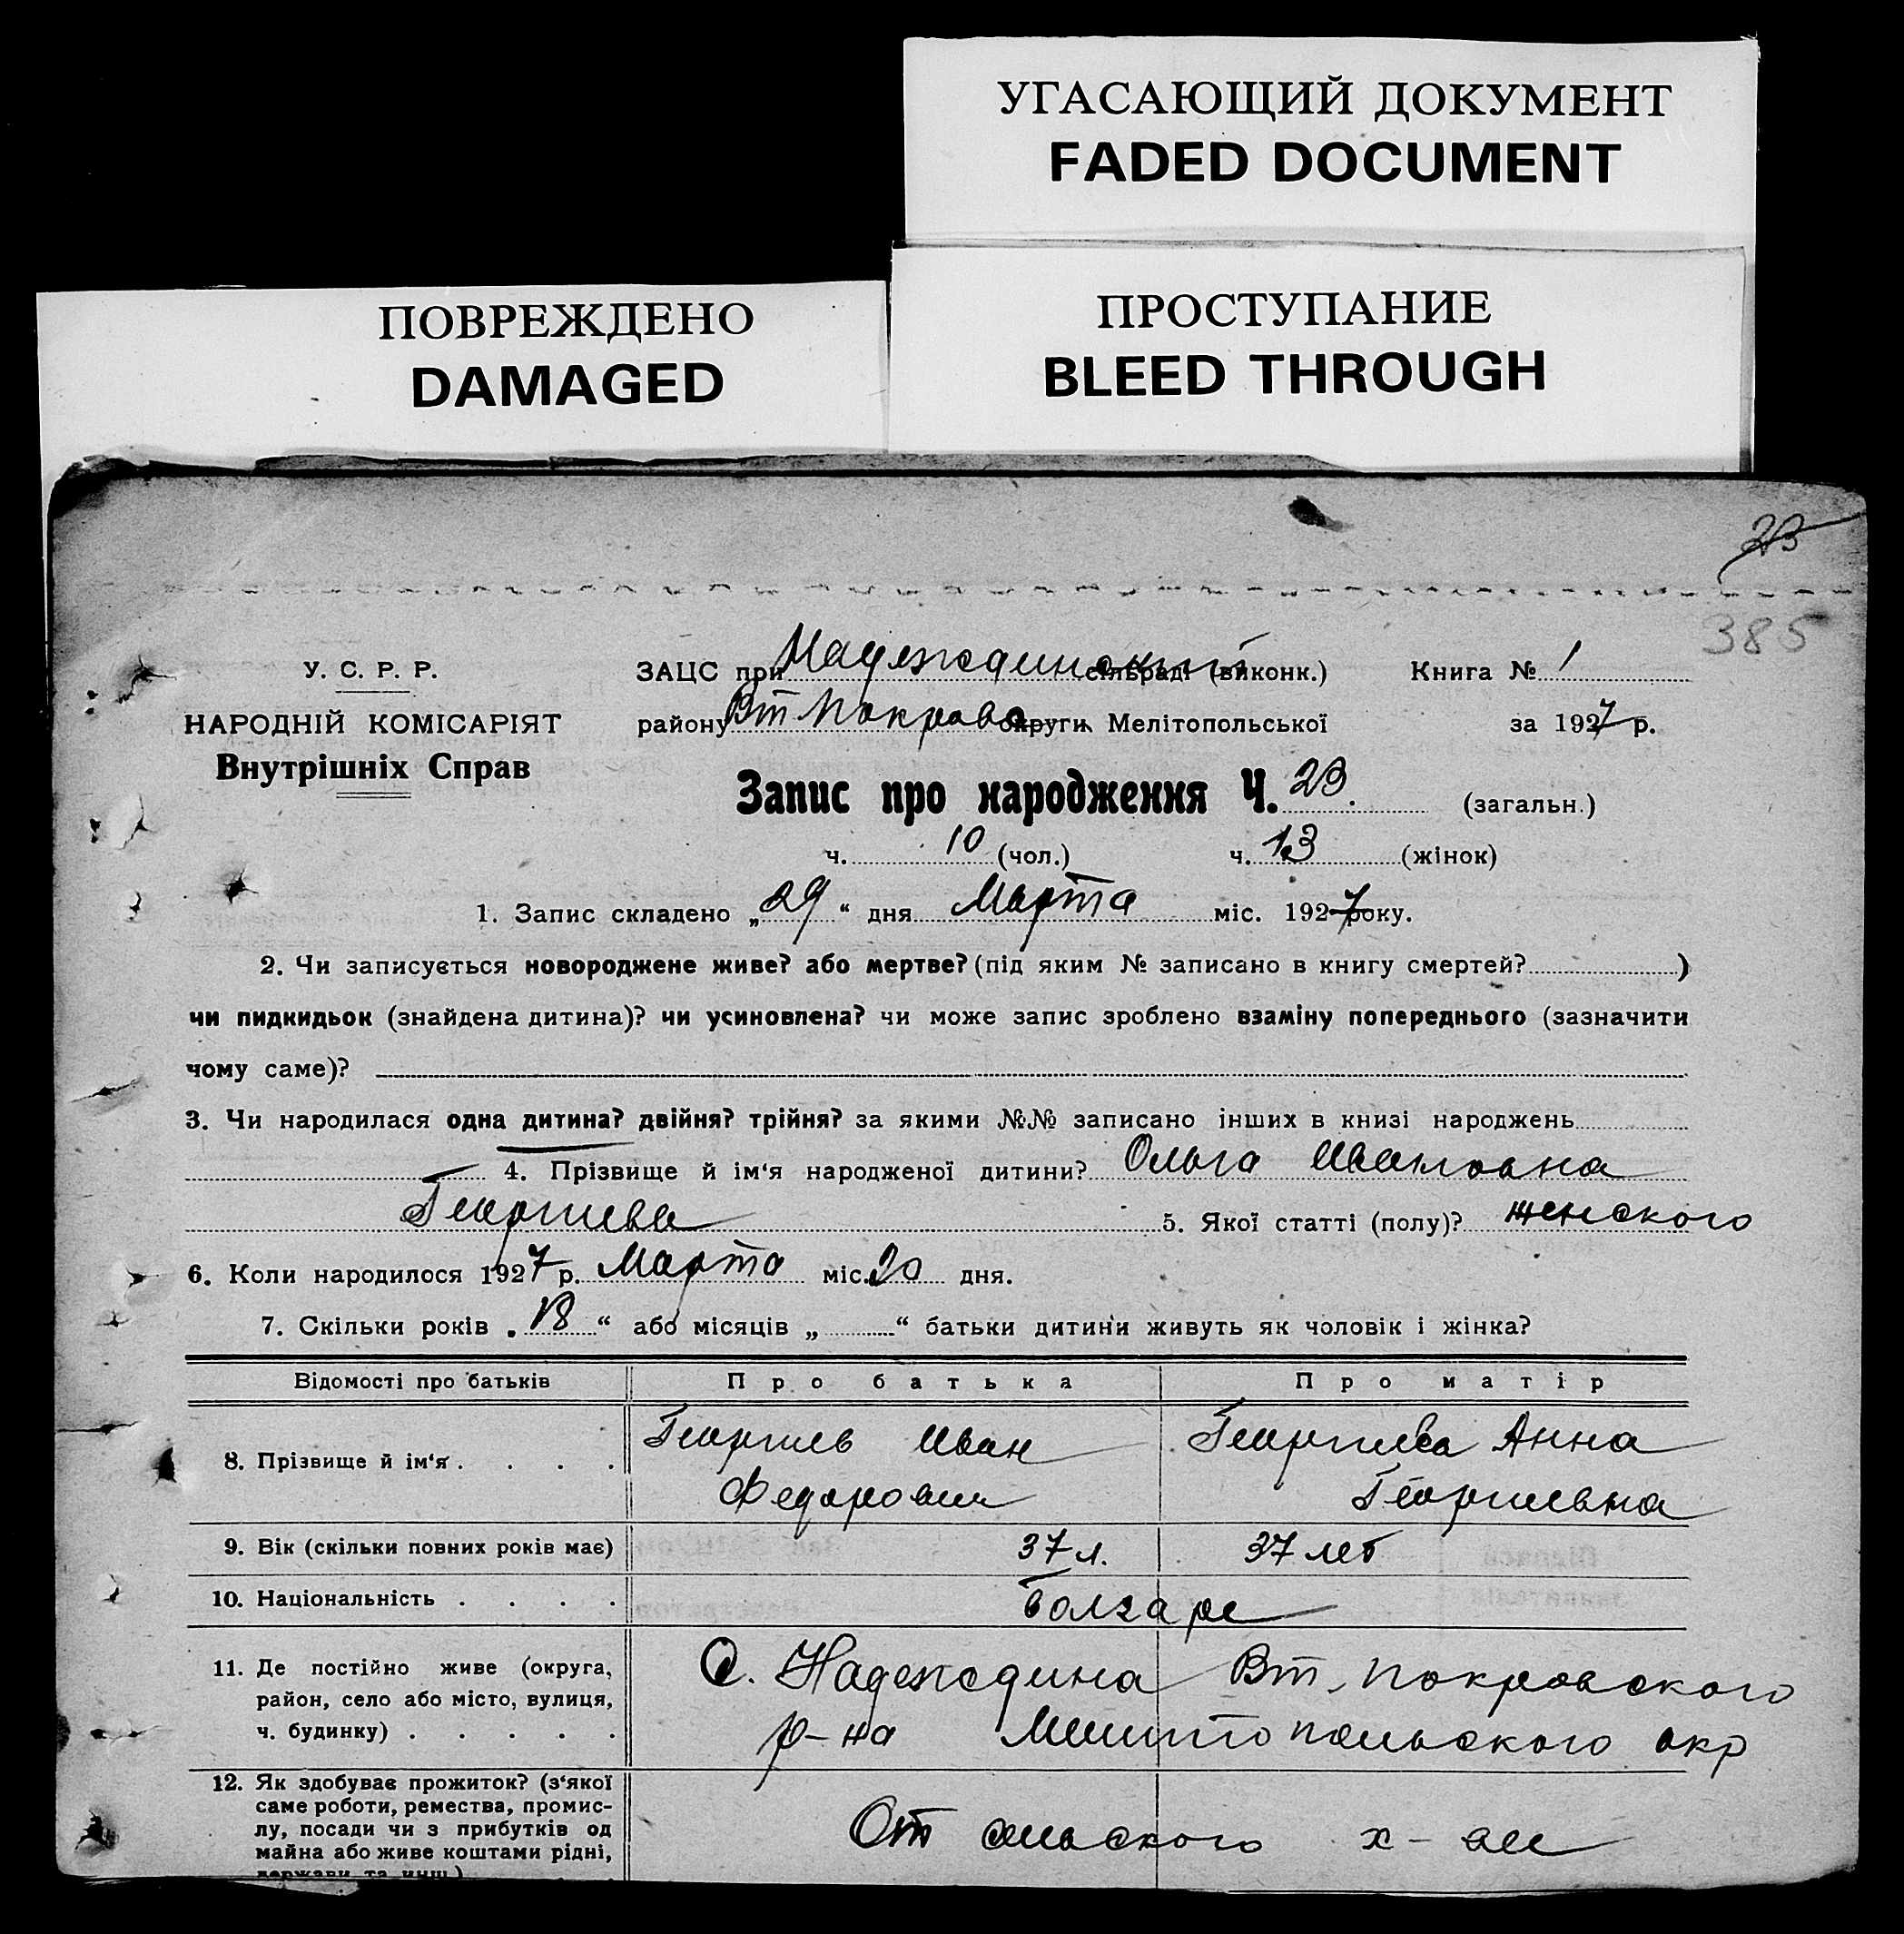 УГАСАЮЩИЙ ДОКУМЕНТ
FADED DOCUMENT
ПОВРЕЖДЕНО
DAMAGED
ПРОСТУПАНИЕ
BLEED THROUGH
23
385
У. С. Р. Р.
НАРОДНІЙ КОМІСАРІЯТ
Внутрішніх Справ
ЗАЦС при Надеждинский сільраді (виконк.) Книга № 1
району Вт Покровс округи Мелітопольської за 1927 р.
Запис про народження Ч. 23. (загальн.)
ч. 10 (чол.) ч. 13 (жінок)
1. Запис складено „29“ дня Марта міс. 1927 року.
2. Чи записується новороджене живе? або мертве? (під яким № записано в книгу смертей? )
чи пидкидьок (знайдена дитина)? чи усиновлена? чи може запис зроблено взаміну попереднього (зазначити
чому саме)?
3. Чи народилася одна дитина? двійня? трійня? за якими №№ записано інших в книзі народжень
4. Прізвище й ім‘я народженої дитини? Ольга Ивановна
Георгиева 5. Якої статті (полу)? женского
6. Коли народилося 1927 р. Марта міс. 20 дня.
7. Скільки років „18“ або місяців „ “ батьки дитини живуть як чоловік і жінка?
Відомості про батьків Про батька Про матір
8. Прізвище й ім‘я . . . . Георгиев Иван Георгиева Анна
Федорович Георгиевна
9. Вік (скільки повних років має) 37 л. 37 лет
10. Національність . . . . болгаре
11. Де постійно живе (округа,
район, село або місто, вулиця,
ч. будинку) . . . . .
С. Надеждина Вт. Покровского
р-на Мелитопольского окр
12. Як здобуває прожиток? (з‘якої
саме роботи, ремества, промис-
лу, посади чи з прибутків од
майна або живе коштами рідні,
держави та инш.)
От сельского х-